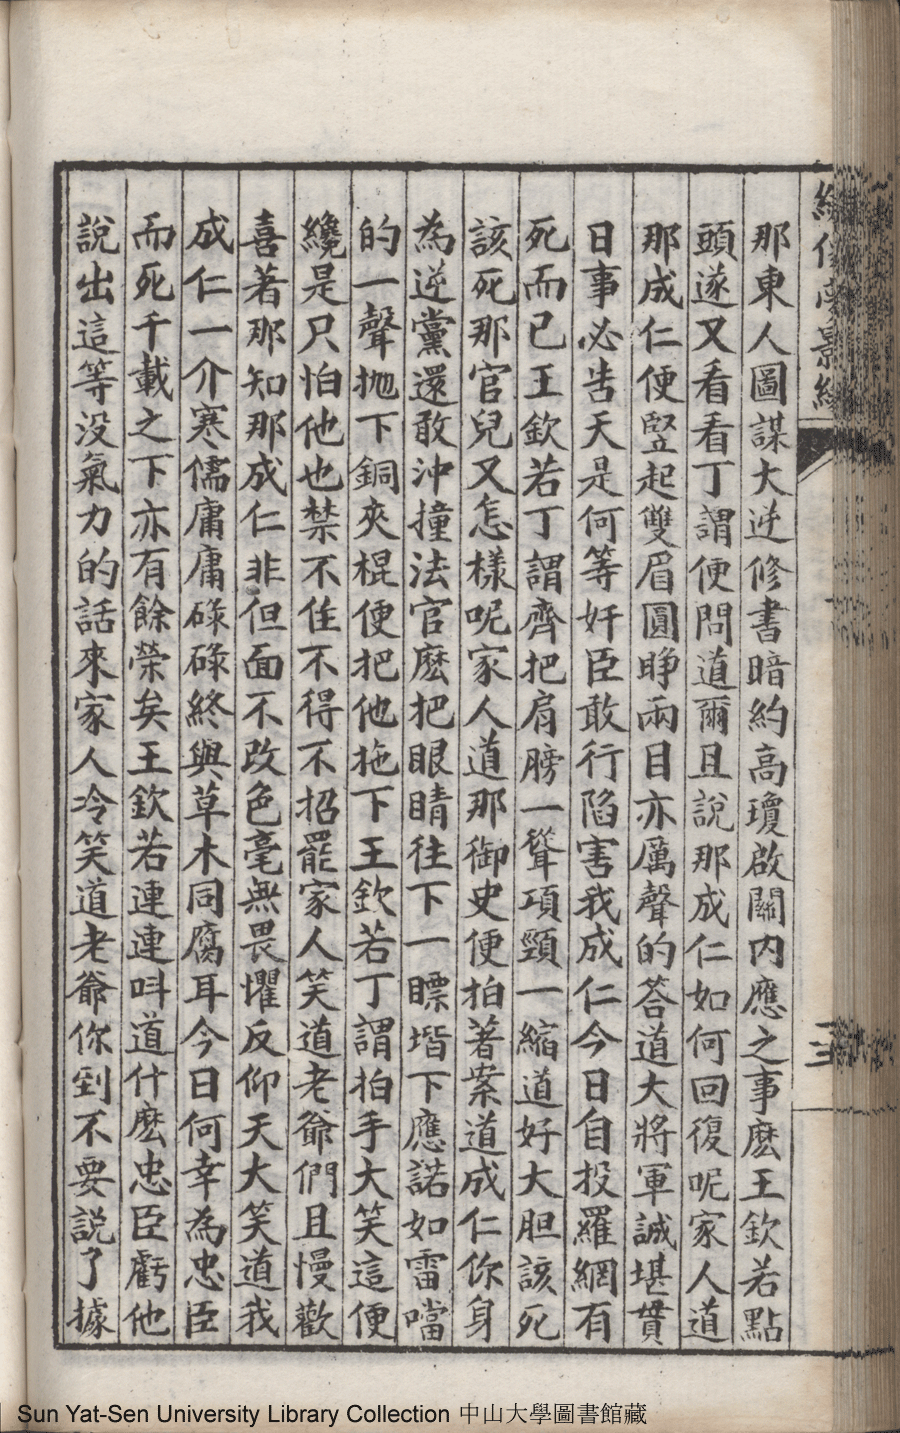 那東人圖謀大逆修書暗約高瓊啟關内應之事麽王欽若點
頭遂又看看丁謂便問道爾且說那成仁如何回復呢家人道
那成仁便竪起雙眉圓睁兩目亦厲聲的荅道大將軍誠堪貫
日事必告天是何等奸臣敢行陷害我成仁今日自投羅網有
死而已王欽若丁謂齊把肩膀一聳項頸一縮道好大胆該死
該死那官兒又怎樣呢家人道那御史便拍著案道成仁你身
為逆黨還敢沖撞法官麽把眼睛往下一瞟堦下應諾如雷噹
的一聲抛下銅夾棍便把他拖下王欽若丁謂拍手大笑這便
纔是只怕他也禁不住不得不招罷家人笑道老爺們且慢歡
喜著那知那成仁非但面不改色毫無畏懼反仰天大笑道我
成仁一介寒儒庸庸碌碌終與草木同腐耳今日何幸為忠臣
而死千載之下亦有餘榮矣王欽若連連呌道什麽忠臣虧他
說出這等没氣力的話來家人冷笑道老爺你到不要説了據
三
Sun Yat-Sen University Library Collection 中山大學圖書館藏